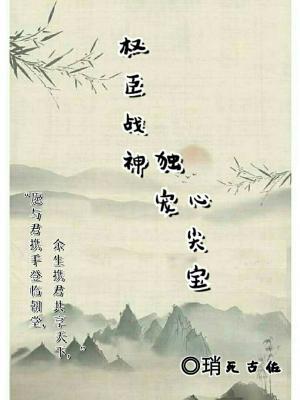 权臣战神
独宠
心尖宝
“愿与君携手登临朝堂，
余生携君共享天下，”